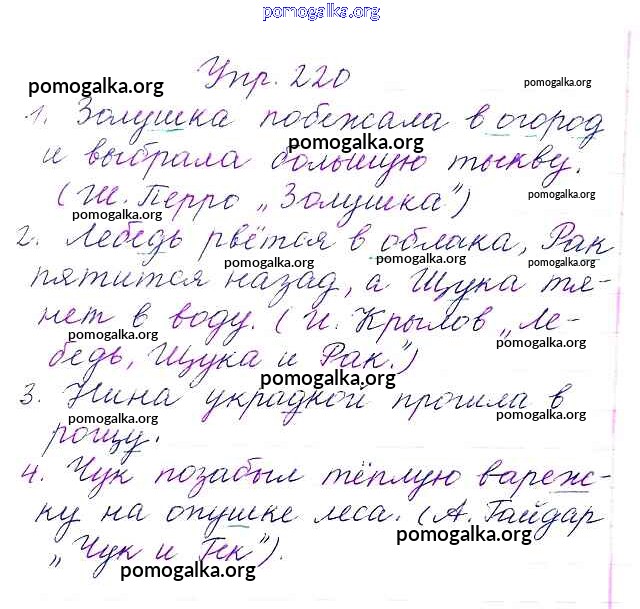 pomogalka.org
Упр. 220
pomogalka.org
pomogalka.org
1. Золушка побежала в огород
pomogalka.org
и выбрала большую тыкву.
(Ш. Перро „Золушка")
pomogalka.org
pomogalka.org
2. Лебедь рвётся в облака, Рак
pomogalka.org
pomogalka.org
pomogalka.org
пятится назад, а Щука тя-
нет в воду. (И. Крылов „Ле-
pomogalka.org
pomogalka.org
бедь, Щука и Рак.")
pomogalka.org
3. Нина украдкой прошла в
pomogalka.org
pomogalka.org
рощу.
4. Чук позабыл тёплую вареж-
ку на опушке леса. (А. Гайдар
pomogalka.org
„Чук и Гек").
pomogalka.org